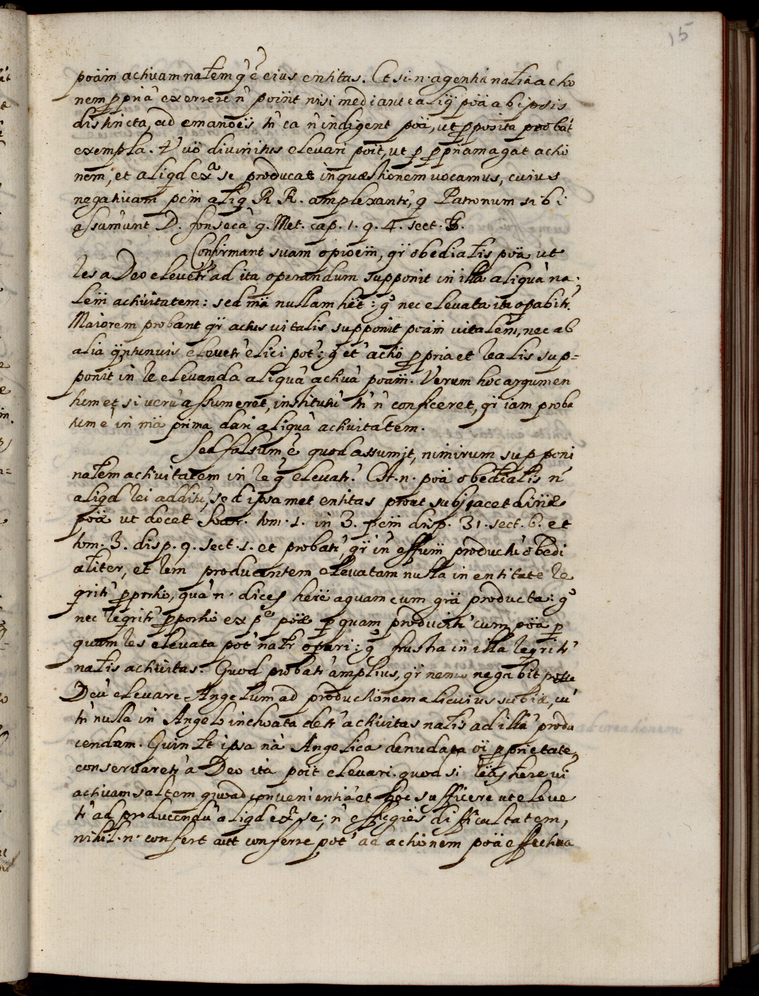 15
põam actiuam nãlem q̃ ẽ eius entitas. Et si n. agentia nãlia actio
nem ppriã exercere ñ possint nisi mediante aliq̃ põa ab ipsis
distincta, ad emanões tñ ea ñ indigent põa, ut pposita probãt
exempla. vº diuinitus eleuari poit, ut p ppriam agat actio
nem, et aliqd exª se producat in quæstionem uocamus, cuius
negatiuam pẽm aliq R R. amplexantr, q Patronum sibi
assumunt D. fonsecã 9. Met. cap. 1. q. 4. sect.
Confirmant suam opioem, qr obedialis põa ut
res a Deo eleuetr ad ita operandum supponit in illa aliquã na
lem actiuitatem: sed mã nullam hẽt: gº nec eleuata ita opabitr.
Maiorem probant qr actus uitalis supponit põam uitalem, nec ab
alia q̃ntumuis eleuetr elici pot: gº et actio ppria et realis sup=
ponit in re eleuanda aliquã actiuã põam. Verum hoc argumen
tum et si uerũ assumeret, institutũ tñ ñ conficeret, qr iam proba
tum ẽ in mã prima dari aliquã actiuitatem.
Sed falsum ẽ quod assumit, nimirum supponi
nãlem actiuitatem in re q eleuatr. Et n. põa obedialis ñ ẽ
aliqd rei additũ, sed ipsamet entitas prout subjacet diuinæ
põæ ut docet Soar. tom. 1. in 3. pẽm disp. 31. sect. 6. et
tom. 3. disp. 9. sect. 1. et probatr, qr inr effũm productũ obedi
aliter, et rem producentem eleuatam nulla in entitate re
qritr pportio, quã n. dices herẽ aquam cum grã producta: gº
nec reqritr pportio ex pe põæ p quam producitr cum põa p
quam res eleuata pot natr opari: gº frustra in illa reqritr
nalis actiuitas. Quod probatr amplius, qr nemo negabit posse
Deũ eleuare Angelum ad productionem alicuius subiæ, cũ
tñ nulla in Angelo inchoata detr actiuitas nalis ad illã produ
cendam. Quin et ipsa nã Angelica denudata oi pprietate,
conseruaretr a Deo ita poit eleuari. quod si dicas herẽ uim
actiuam saltem quoad conuenientiã et hoc sufficere ut eleue
tr ad producendũ aliqd exª se; ñ effugies difficultatem,
nihil n. confert aut conferre pot ad actionem põa effectiua
ad creationem